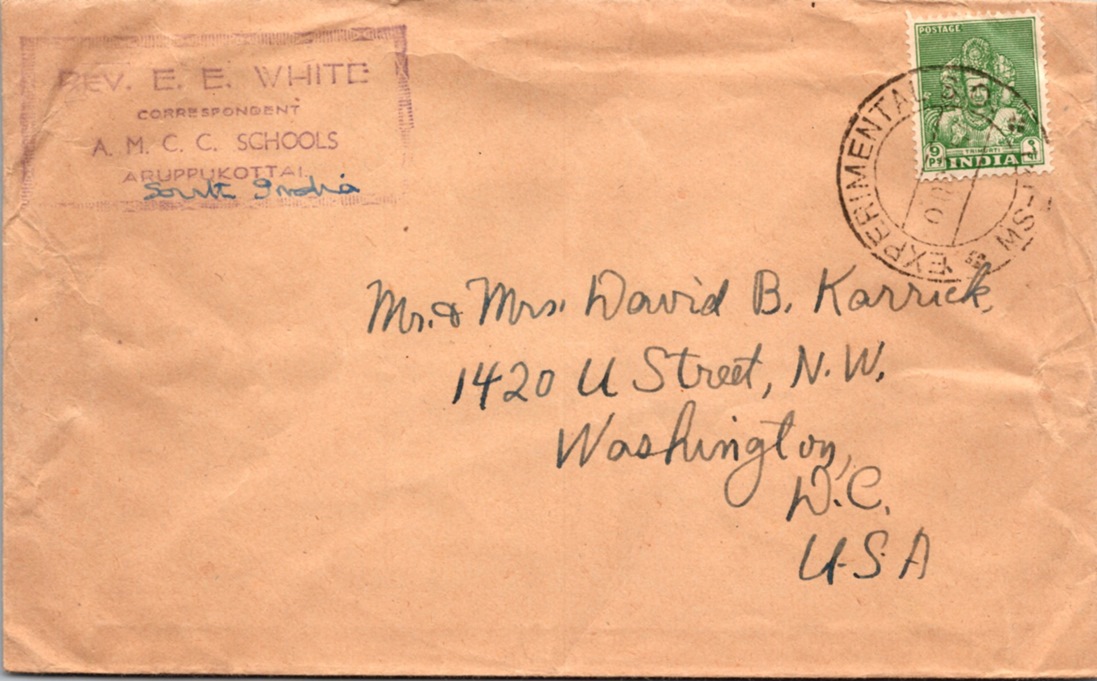 REV. E. E. WHITE
CORRESPONDENT
A. M. C. C. SCHOOLS
ARUPPUKOTTAI.
South India
POSTAGE
9
Ps
TRIMURTI
INDIA
EXPERIMENTAL
Mr. & Mrs. David B. Karrick,
1420 U Street, N.W.
Washington,
D.C.
U.S.A